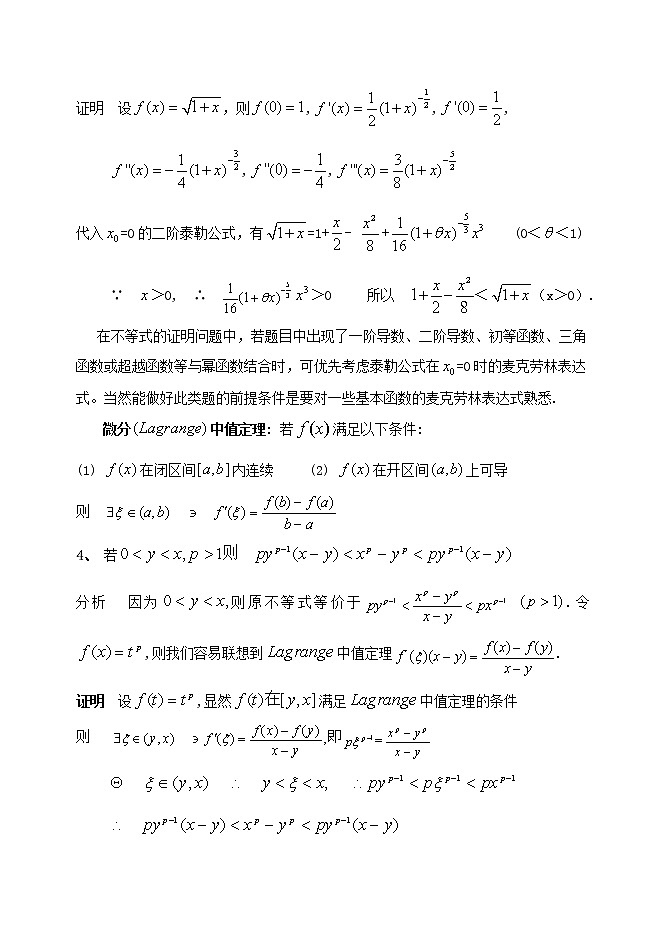 证明　设 f(x) = √(1+x)，则 f(0) = 1, f'(x) = 1/2 (1+x)^(-1/2), f'(0) = 1/2,
f''(x) = -1/4 (1+x)^(-3/2), f''(0) = -1/4, f'''(x) = 3/8 (1+x)^(-5/2)
代入 x₀=0 的二阶泰勒公式，有 √(1+x) =1+ x/2 - x²/8 + 1/16 (1+θx)^(-5/3) x³　(0＜θ＜1)
∵　x＞0,　∴　1/16 (1+θx)^(-5/3) x³＞0　所以　1+ x/2 - x²/8 ＜ √(1+x)（x＞0）.
在不等式的证明问题中，若题目中出现了一阶导数、二阶导数、初等函数、三角
函数或超越函数等与幂函数结合时，可优先考虑泰勒公式在 x₀=0 时的麦克劳林表达
式。当然能做好此类题的前提条件是要对一些基本函数的麦克劳林表达式熟悉.
微分(Lagrange)中值定理：若 f(x) 满足以下条件：
(1) f(x) 在闭区间[a,b]内连续　(2) f(x) 在开区间(a,b)上可导
则　∃ξ∈(a,b)　∍　f′(ξ) = (f(b) - f(a))/(b - a)
4、 若 0 < y < x, p > 1则　py^(p-1)(x - y) < x^p - y^p < py^(p-1)(x - y)
分析　因为 0 < y < x,则原不等式等价于 py^(p-1) < (x^p - y^p)/(x - y) < px^(p-1) (p > 1).令
f(x) = t^p,则我们容易联想到 Lagrange 中值定理 f (ξ)(x - y) = (f(x) - f(y))/(x - y).
证明　设 f(t) = t^p,显然 f(t)在[y,x]满足 Lagrange 中值定理的条件
则　∃ξ∈(y,x)　∍ f′(ξ) = (f(x) - f(y))/(x - y),即 pξ^(p-1) = (x^p - y^p)/(x - y)
Θ　ξ∈(y,x)　∴　y < ξ < x,　∴ py^(p-1) < pξ^(p-1) < px^(p-1)
∴　py^(p-1)(x - y) < x^p - y^p < py^(p-1)(x - y)